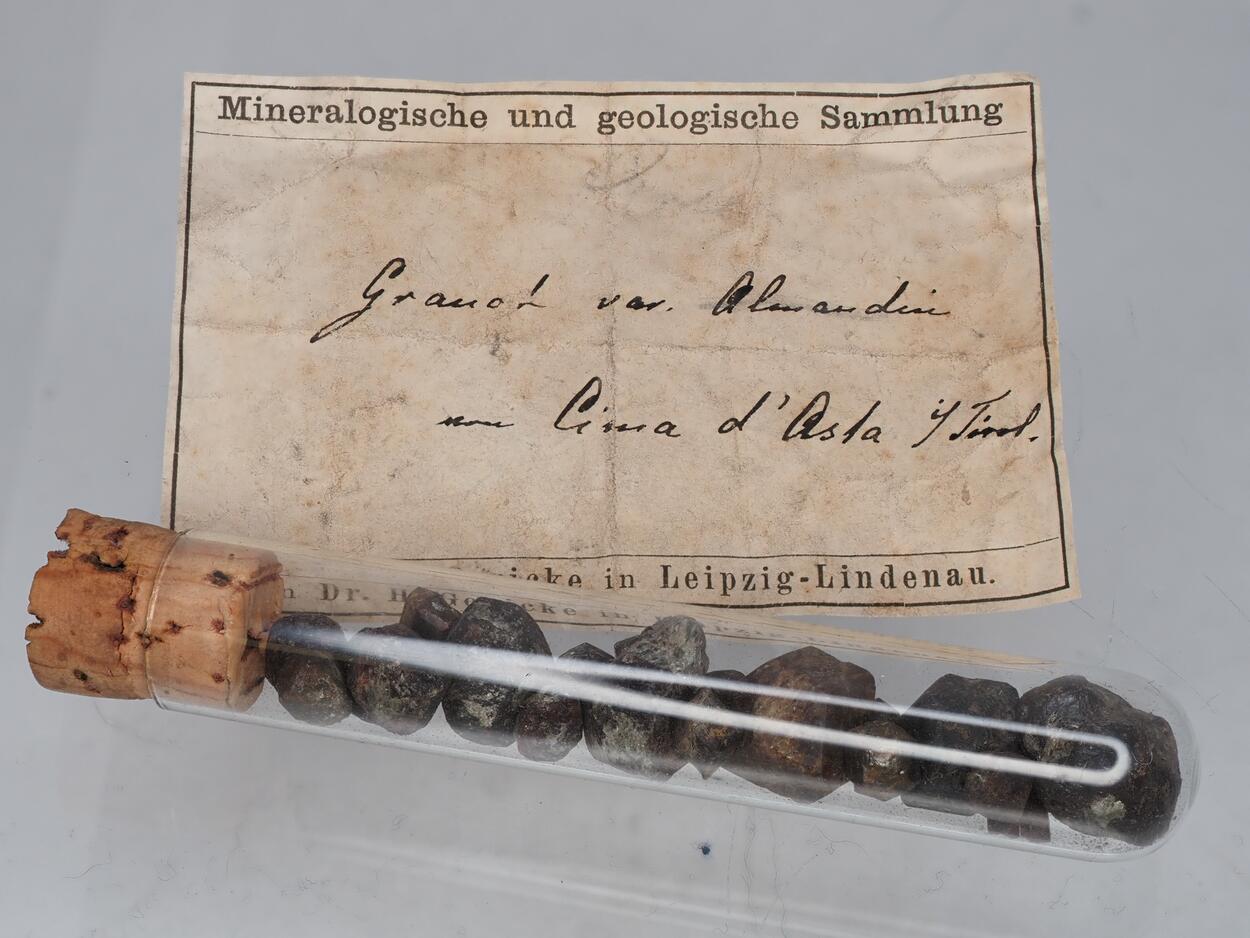 Mineralogische und geologische Sammlung
Granat var. Almandin
von Cima d'Asta i/Tirol.
Dr. H. in Leipzig-Lindenau.